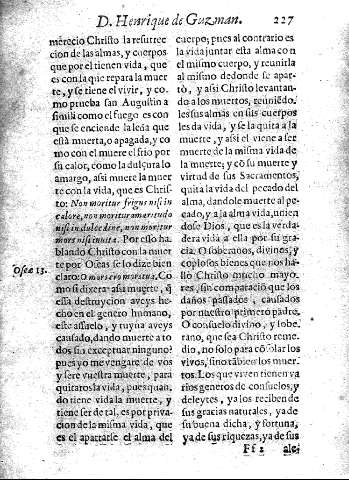 D. Henrique de Guzman. 227
merecio Christo la resurrec
cion de las almas, y cuerpos
que por el tienen vida, que
es con la que repara la muer
te, y se tiene el vivir, y co-
mo prueba san Augustin a
simili como el fuego es con
que se enciende la leña que
està muerta, o apagada, y co
mo con el muere el frio por
su calor, como la dulçura lo
amargo, assi muere la muer
te con la vida, que es Chris-
to: Non moritur frigus nisi in
calore, non moritur amaritudo
nisi in dulcedine, non moritur
mors nisi in vita. Por esso ha
blando Christo con la muer
te por Oseas se lo dize bien
Osea 13.
claro: O mors ero mors tua. Co
mo si dixera: assi muerte, q̃
essa destruycion aveys he-
cho en el genero humano,
este assuelo, y ruyna aveys
causado, dando muerte a to
dos sin exceptuar ninguno?
pues yo me vengarè de vos
y serè vuestra muerte, para
quitaros la vida, pues quan-
do tiene vida la muerte, y
tiene ser de tal, es por priva-
cion de la misma vida, que
es el apartarse el alma del
cuerpo; pues al contrario es
la vida juntar esta alma con
el mismo cuerpo, y reunirla
al mismo dedonde se apar-
tò, y assi Christo levantan-
do a los muertos, reuniẽdo-
les sus almas en sus cuerpos
les da vida, y se la quita a la
muerte, y assi el viene a ser
muerte de la misma vida de
la muerte; y cõ su muerte y
virtud de sus Sacramentos,
quita la vida del pecado del
alma, dandole muerte al pe-
cado, y a la alma vida, unien
dose Dios, que es la verda-
dera vida a ella por su gra-
cia. O soberanos, divinos, y
copiosos bienes que nos ha-
llò Christo mucho mayo-
res, sin comparaciõ que los
daños passados, causados
por nuestro primero padre.
O consuelo divino, y sobe-
rano, que sea Christo reme-
dio, no solo para cõsolar los
vivos, sino tãbien los muer-
tos. Los que viven tienen va
rios generos de consuelos, y
deleytes, ya los reciben de
sus gracias naturales, ya de
su buena dicha, y fortuna,
ya de sus riquezas, ya de sus
Ff 2 ale-